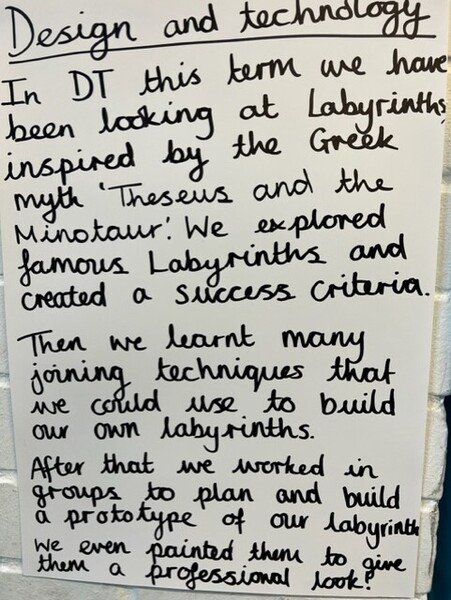 Design and technology
In DT this term we have
been looking at Labyrinths
inspired by the Greek
myth 'Theseus and the
Minotaur'. We explored
famous Labyrinths and
created a success criteria.
Then we learnt many
joining techniques that
we could use to build
our own labyrinths.
After that we worked in
groups to plan and build
a prototype of our labyrinth
We even painted them to give
them a professional look!